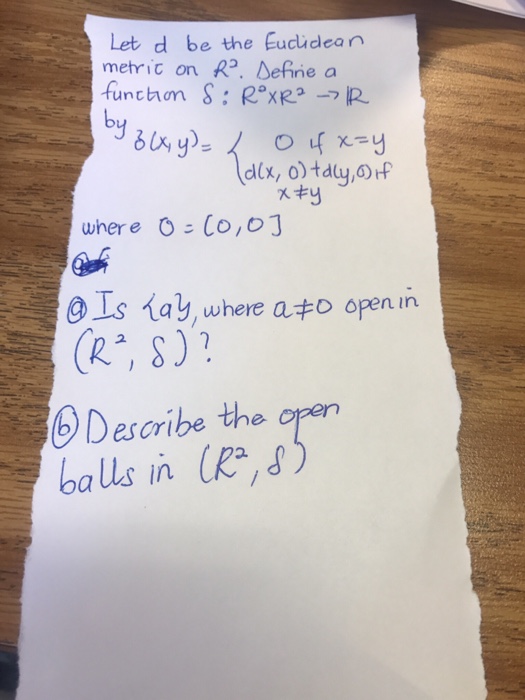 Let d be the Euclidean
metric on R². Define a
function δ : R²xR² → R
by δ(x, y) = { 0 if x=y
d(x, 0)+d(y,0) if
x≠y
where 0 = (0,0]
ⓐ Is {a}, where a≠0 open in
(R², δ) ?
ⓑ Describe the open
balls in (R², δ)